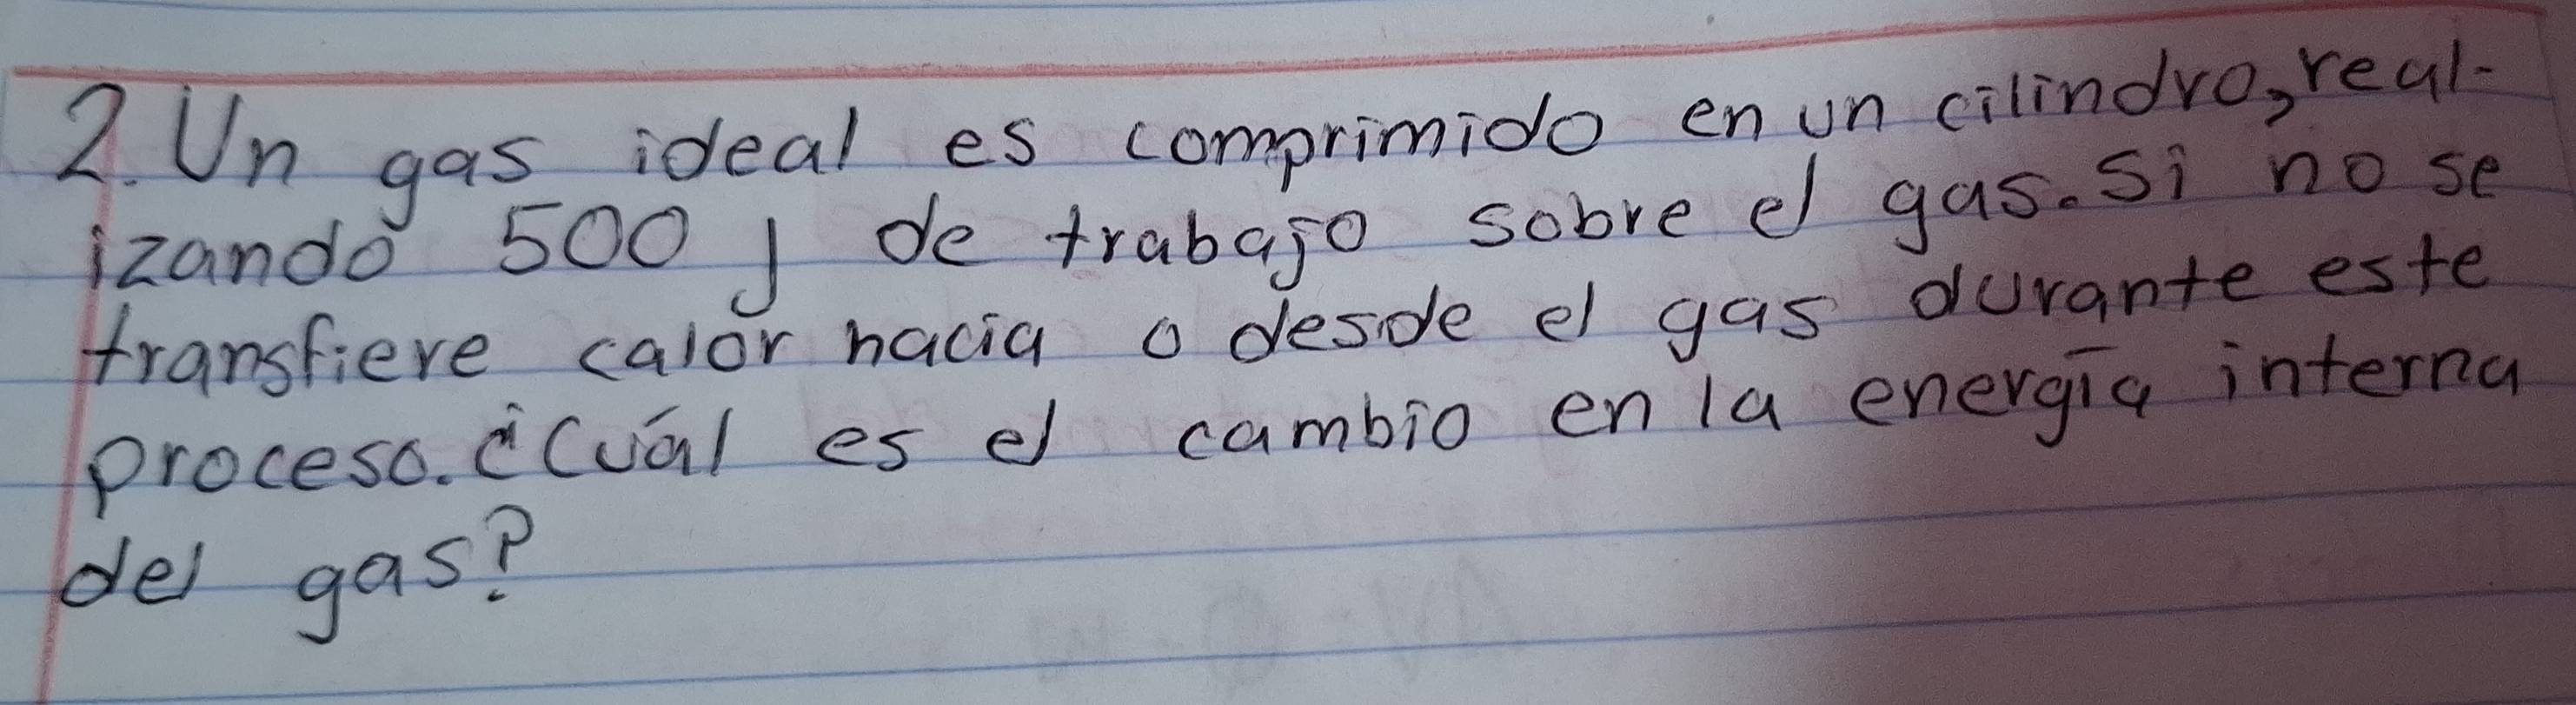 2. Un gas ideal es comprimido en un cilindro, real-
izando 500 j de trabajo sobre el gas. Si no se
transfiere calor hacia o desde el gas durante este
proceso. ¿Cuál es el cambio en la energía interna
del gas?